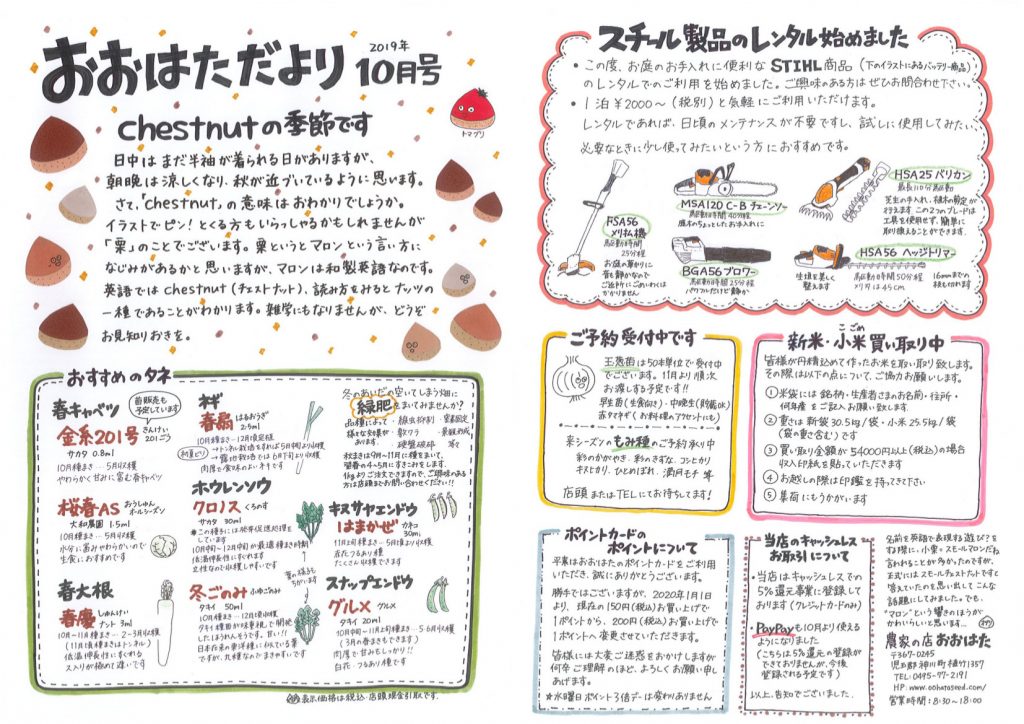 おおはただより
2019年
10月号
トマグリ
chestnutの季節です
日中はまだ半袖が着られる日がありますが、
朝晩は涼しくなり、秋が近づいているように思います。
さて、「chestnut」の意味はおわかりでしょうか。
イラストでピン!とくる方もいらっしゃるかもしれませんが
「栗」のことでございます。栗というとマロンという言い方に
なじみがあるかと思いますが、マロンは和製英語なのです。
英語ではchestnut(チェストナット)、読み方をみるとナッツの
一種であることがわかります。雑学にもなりませんが、どうぞ
お見知りおきを。
おすすめのタネ
春キャベツ
苗販売も
予定しています
金系201号
きんけい
201ごう
サカタ 0.8ml
10月種まき…5月収穫
やわらかく甘みに富む春キャベツ
桜春AS
おうしゅん
オールシーズン
大和農園 1.5ml
10月種まき…5月収穫
水分に富みやわらかいので
生食におすすめです
春大根
春慶
しゅんけい
ナント 3ml
10月~11月種まき…2-3月収穫
(11月頃本種まきはトンネル)
低温伸長性にすぐれる
ス入りが極めて遅いです
ネギ
春扇
はるおうぎ
2.5ml
10月種まき…12月頃定植
→トンネル栽培すれば5月中旬より収穫
→露地栽培では6月下旬より収穫
肉厚で食味のよいネギです
ホウレンソウ
クロノス
くろのす
サカタ 30ml
*この種子には発芽促進処理を
しています
10月中旬~12月中旬が最適種まき時期
低温伸長性にすぐれます
立性なので収穫しやすいです
葉の様子も
ちがいます
冬ごのみ
ふゆごのみ
タキイ 50ml
10月種まき…12月頃収穫
タキイ種苗が味重視で開発
したほうれんそうです。甘い!!
日本在来の東洋種に似ている葉
ですが、丸種なのでまきやすいです
冬のあいだの空いてしまう畑に
緑肥をまいてみませんか?
品種によって
様々な効果が
あります。
・線虫抑制
・敷ワラ
・硬盤破砕
・景観形成
等
秋まきは9月~11月に種をまいて、
翌春の4~5月にすきこみをします。
1kgよりご注文できますので、ご興味のある
方は店頭までお問い合わせください!!
キヌサヤエンドウ
はまかぜ
カネコ
30ml
11月上旬種まき…5月頃より収穫
店花つるあり種で
たくさん収穫できます
スナップエンドウ
グルメ
グルメ
タキイ 20ml
10月中旬~11月上旬種まき…5-6月収穫
(3月の春まきもできます)
肉厚で甘みもしっかり!!
白花・つるあり種です
表示価格は税込・店頭現金引取です。
スチール製品のレンタル始めました
・この度、お庭のお手入れに便利なSTIHL商品(下のイラストにあるバッテリー商品)
のレンタルでのご利用を始めました。ご興味のある方はぜひお問合わせ下さい。
・1泊¥2000~(税別)と気軽にご利用いただけます。
レンタルであれば、日頃のメンテナンスが不要ですし、試しに使用してみたい、
必要なときに少し使ってみたいという方におすすめです。
FSA56
刈払機
駆動時間
25分程
お庭の草かりに
音も静かなので
ご近所にごめいわくは
かかりません
MSA120 C-Bチェーンソー
駆動時間40分程
庭木のちょっとしたお手入れに
BGA56ブロワー
駆動時間25分程
パワフルだけど静か
HSA25バリカン
最長110分駆動
芝生の手入れ、植木の剪定が
行えます。この2つのブレードは
工具を使用せず、簡単に
取り換えることができます。
HSA56ヘッジトリマー
駆動時間50分程
刈刃は45cm
生垣を美しく
整えます
16mmまでの
枝も切れます
ご予約受付中です
玉葱苗は50本単位で受付中
でございます。11月より順次
お渡しする予定です!!
早生苗(生食向き)・中晩生(貯蔵OK)
赤タマネギ(お料理のアクセントにも)
来シーズンのもみ種のご予約承り中
彩のかがやき、彩のきずな、コシヒカリ
キヌヒカリ、ひとめぼれ、満月モチ 等
店頭またはTELにてお待ちしてます!
新米・小米買い取り中
こごめ
皆様が丹精込めて作ったお米を買い取り致します。
その際は以下の点について、ご協力お願いします。
①米袋には銘柄・生産者さまのお名前・住所・
何年産をご記入お願い致します。
②重さは新袋30.5kg/袋・小米25.5kg/袋
(袋の重さ含む)です
③買い取り金額が54000円以上(税込)の場合
収入印紙を貼っていただきます
④お越しの際は印鑑を持ってきて下さい
⑤集荷にもうかがいます
ポイントカードの
ポイントについて
平素はおおはたのポイントカードをご利用
いただき、誠にありがとうございます。
勝手ではございますが、2020年1月1日
より、現在の150円(税込)お買い上げで
1ポイントから、200円(税込)お買い上げで
1ポイントへ変更させていただきます。
皆様には大変ご迷惑をおかけしますが
何卒ご理解のほど、よろしくお願い申し
あげます。
☆水曜日ポイント3倍デーは変わりありません
当店のキャッシュレス
お取引について
・当店はキャッシュレスでの
5%還元事業に登録して
おります(クレジットカードのみ)
・PayPayも10月より使える
ようになりました
(こちらは5%還元の登録が
できておりませんが、今後
登録される予定です)
以上、告知でございました。
名前を英語で表現する遊び?を
する際に、小栗=スモールマロンだね
言われることが多かったのですが、
正式にはスモールチェストナットですと
答えていたのを思い出してこんな
話題にしてみました。でも、
"マロン"という響きのほうが
かわいらしいと思います…
農家の店 おおはた
〒367-0245
児玉郡神川町植竹1357
TEL:0495-77-2191
HP:www.oohataseed.com/
営業時間:8:30~18:00